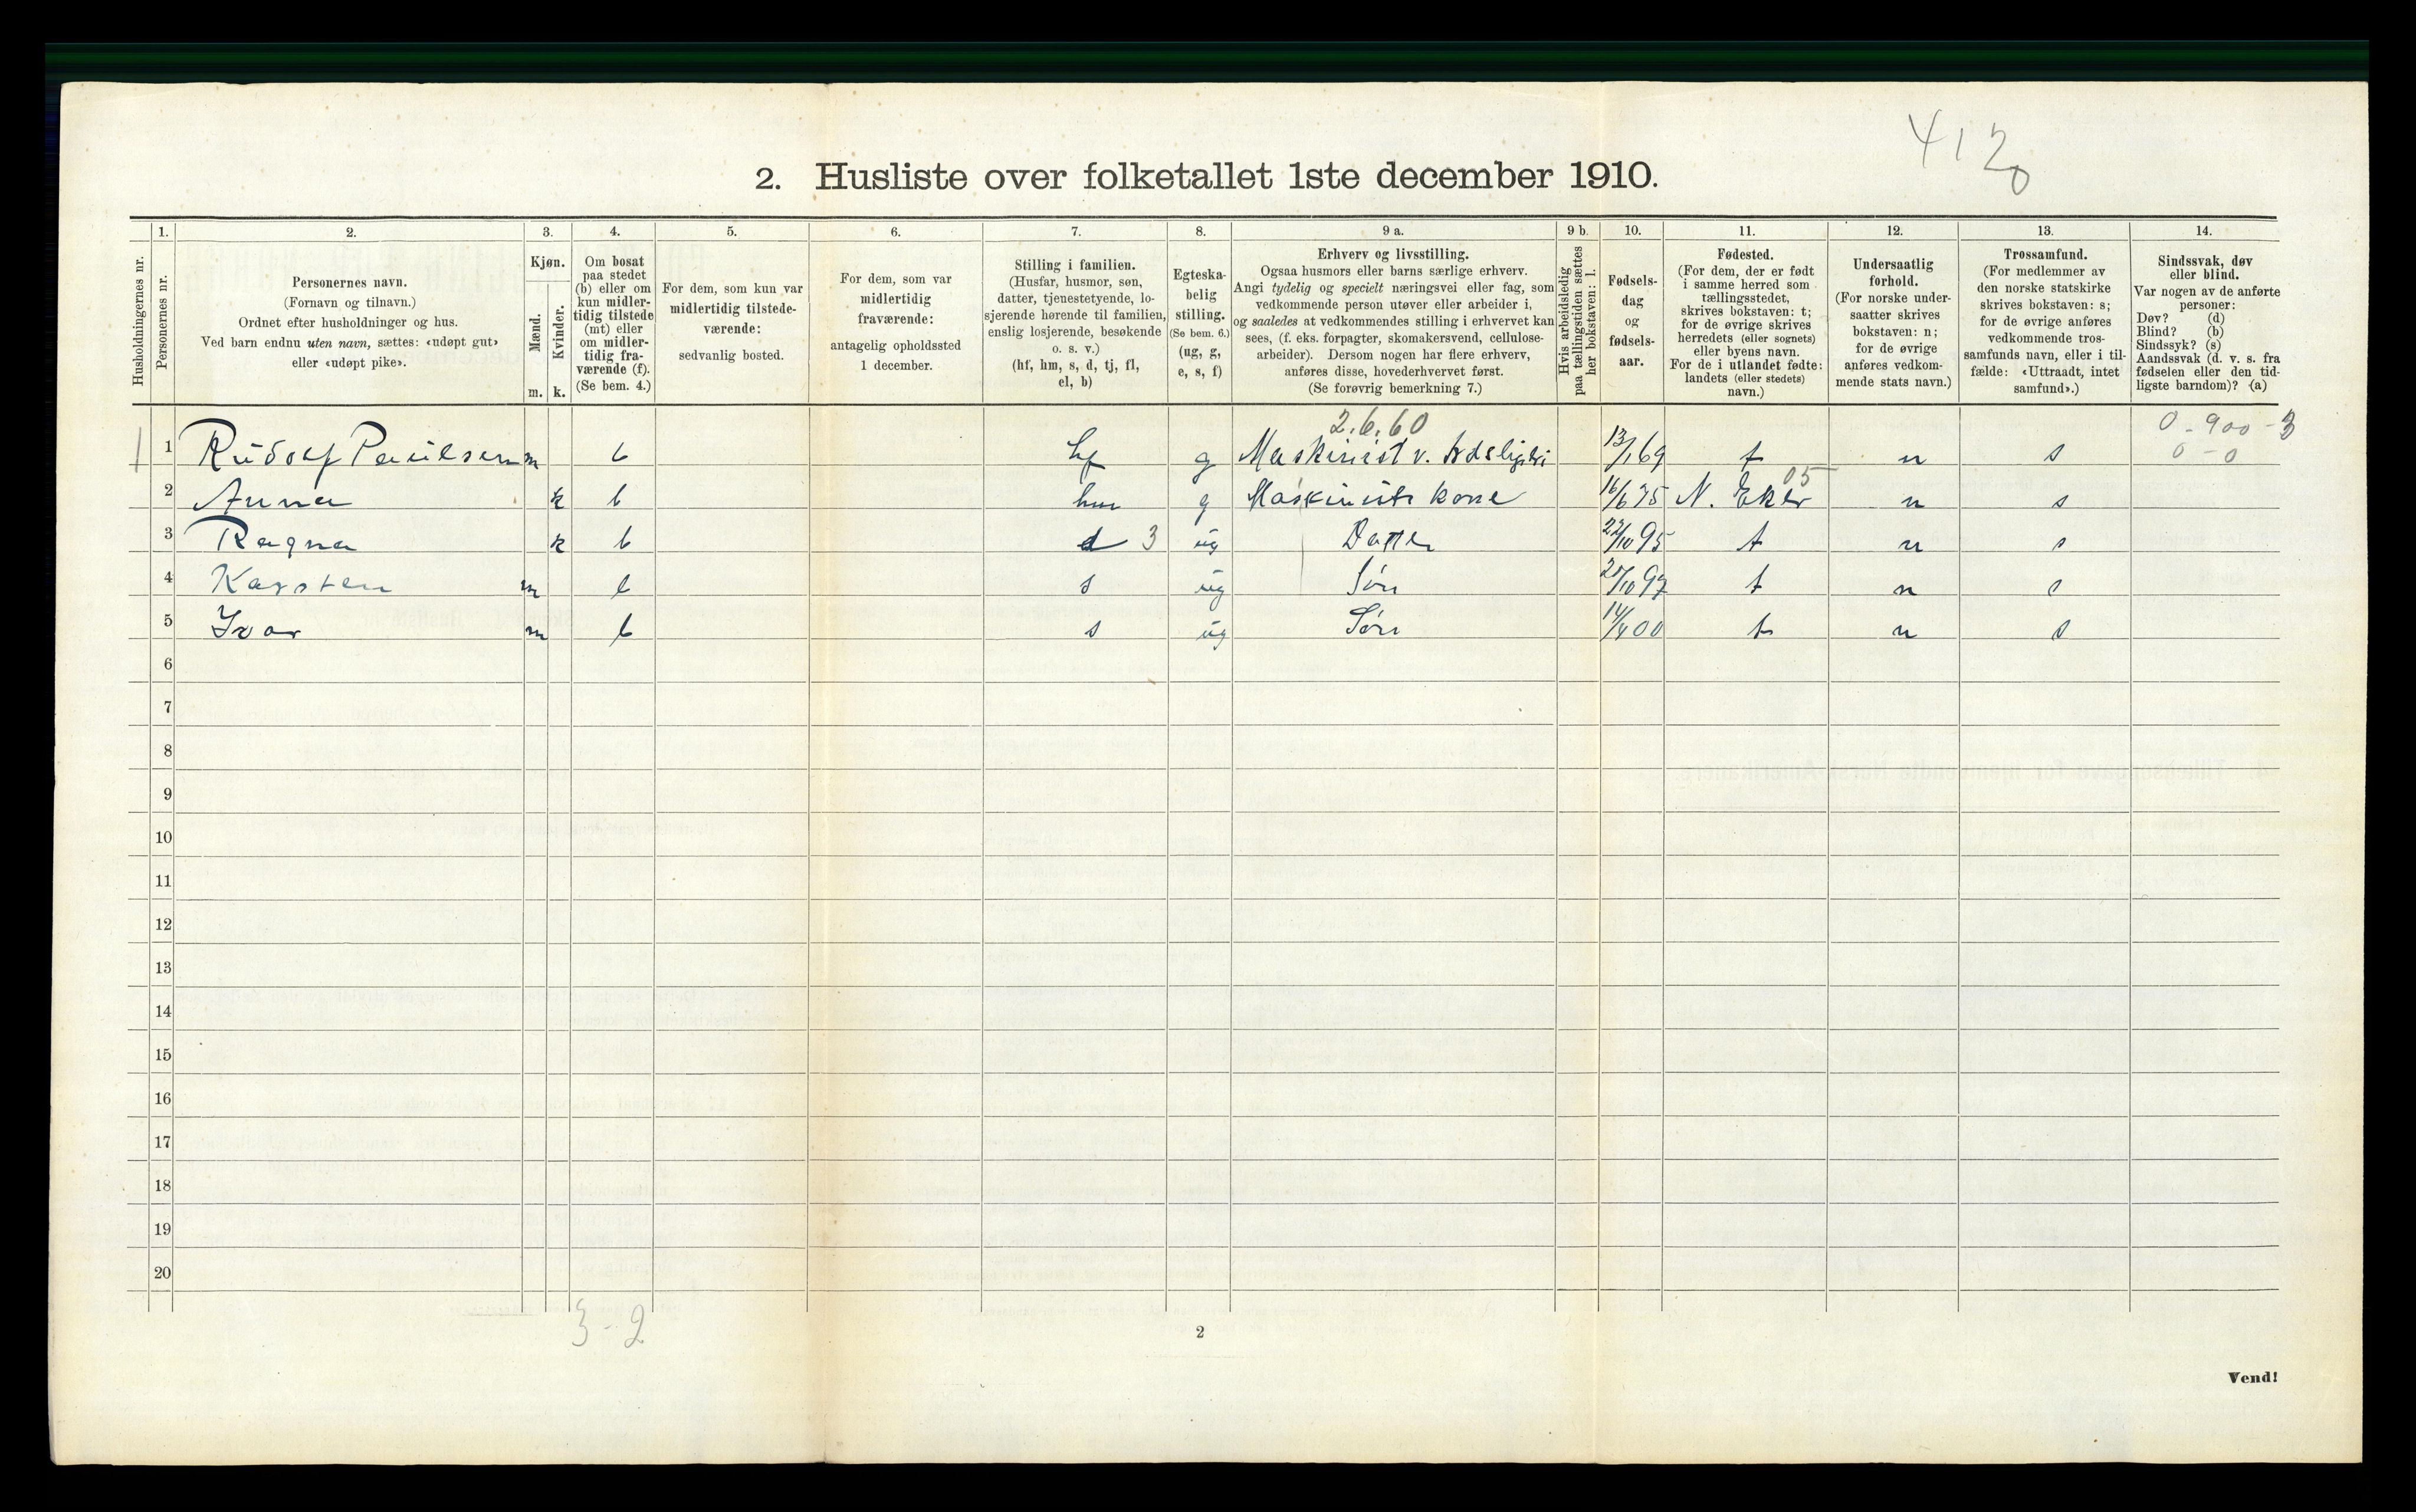 412
0
2. Husliste over folketallet 1ste december 1910.
Husholdningernes nr.
1. Personernes nr.
2. Personernes navn.
(Fornavn og tilnavn.)
Ordnet efter husholdninger og hus.
Ved barn endnu uten navn, sættes: «udøpt gut»
eller «udøpt pike».
3. Kjøn.
Mænd. Kvinder.
m. k.
4. Om bosat
paa stedet
(b) eller om
kun midler-
tidig tilstede
(mt) eller
om midler-
tidig fra-
værende (f).
(Se bem. 4.)
5. For dem, som kun var
midlertidig tilstede-
værende:
sedvanlig bosted.
6. For dem, som var
midlertidig
fraværende:
antagelig opholdssted
1 december.
7. Stilling i familien.
(Husfar, husmor, søn,
datter, tjenestetyende, lo-
sjerende hørende til familien,
enslig losjerende, besøkende
o. s. v.)
(hf, hm, s, d, tj, fl,
el, b)
8. Egteska-
belig
stilling.
(Se bem. 6.)
(ug, g,
e, s, f)
9 a. Erhverv og livsstilling.
Ogsaa husmors eller barns særlige erhverv.
Angi tydelig og specielt næringsvei eller fag, som
vedkommende person utøver eller arbeider i,
og saaledes at vedkommendes stilling i erhvervet kan
sees, (f. eks. forpagter, skomakersvend, cellulose-
arbeider). Dersom nogen har flere erhverv,
anføres disse, hovederhvervet først.
(Se forøvrig bemerkning 7.)
9 b. Hvis arbeidsledig
paa tællingstiden sættes
her bokstaven: l.
10. Fødsels-
dag
og
fødsels-
aar.
11. Fødested.
(For dem, der er født
i samme herred som
tællingsstedet,
skrives bokstaven: t;
for de øvrige skrives
herredets (eller sognets)
eller byens navn.
For de i utlandet fødte:
landets (eller stedets)
navn.)
12. Undersaatlig
forhold.
(For norske under-
saatter skrives
bokstaven: n;
for de øvrige
anføres vedkom-
mende stats navn.)
13. Trossamfund.
(For medlemmer av
den norske statskirke
skrives bokstaven: s;
for de øvrige anføres
vedkommende tros-
samfunds navn, eller i til-
fælde: «Uttraadt, intet
samfund».)
14. Sindssvak, døv
eller blind.
Var nogen av de anførte
personer:
Døv? (d)
Blind? (b)
Sindssyk? (s)
Aandssvak (d. v. s. fra
fødselen eller den tid-
ligste barndom)? (a)
2.6.60 0-900-3
1 1 Rudolf Paulsen m b hf g Maskinist v. 13/1 69 t n s 0-0
2 Anna k b hm g Maskinists kone 16/6 75 N. Eker 05 n s
3 Ragna k b d 3 ug Datter 22/10 95 t n s
4 Karsten m b s ug Søn 97 t n s
5 Ivar m b s ug Søn 14/4 00 t n s
6
7
8
9
10
11
12
13
14
15
16
17
18
19
20
3-2
2
Vend!